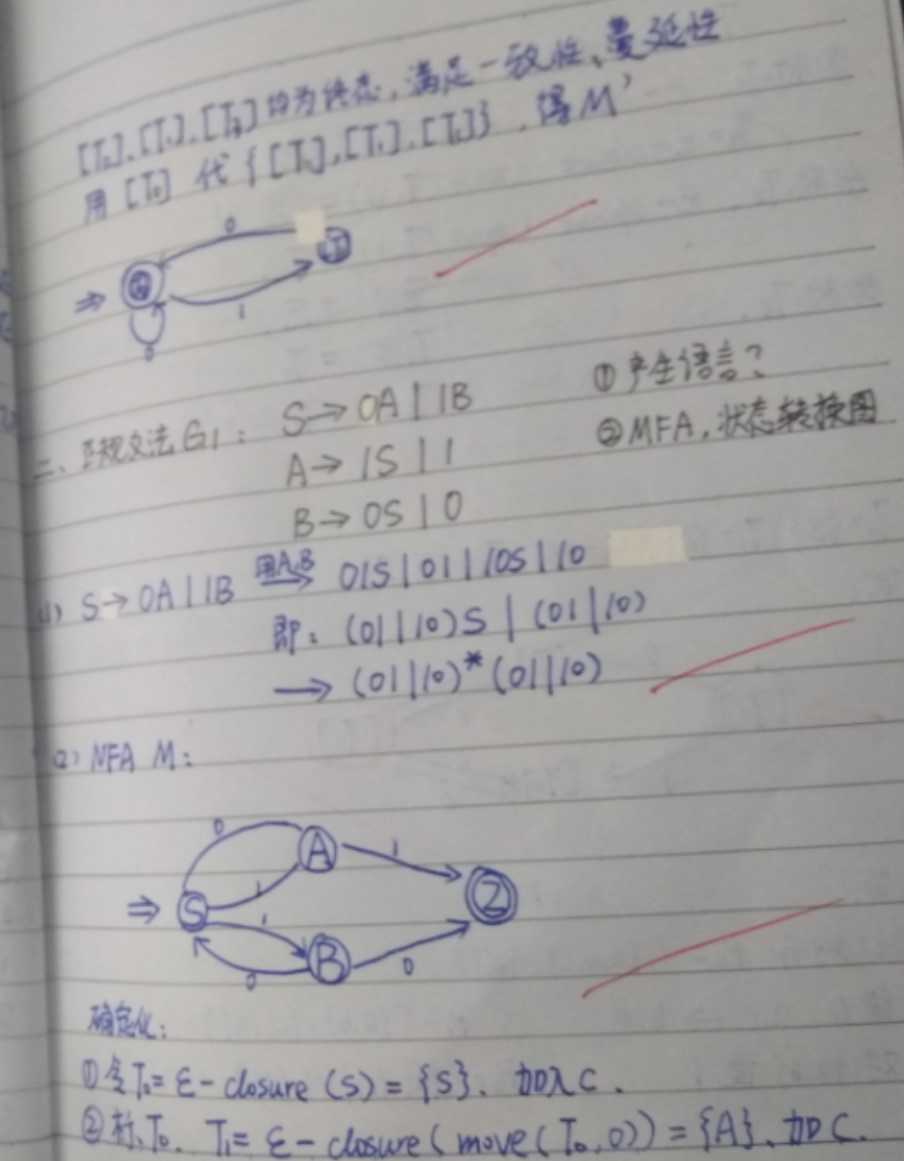 [T₀].[T₁].[T₃]均为终态,满足一致性、蔓延性
用[T₀]代{[T₀],[T₁],[T₃]},得M'
0
⇒
1
0
二、正规文法G1: S→0A|1B ①产生语言?
A→1S|1 ②MFA,状态转换图
B→0S|0
(1) S→0A|1B 用A,B⇒ 01S|01|10S|10
即:(01|10)S|(01|10)
→(01|10)*(01|10)
(2) NFA M:
0 A 1
⇒ S 1 Z
1
0 B 0
确定化:
①令T₀=ε-closure(S)={S}、加入C.
②标T₀. T₁=ε-closure(move(T₀,0))={A}、加C.